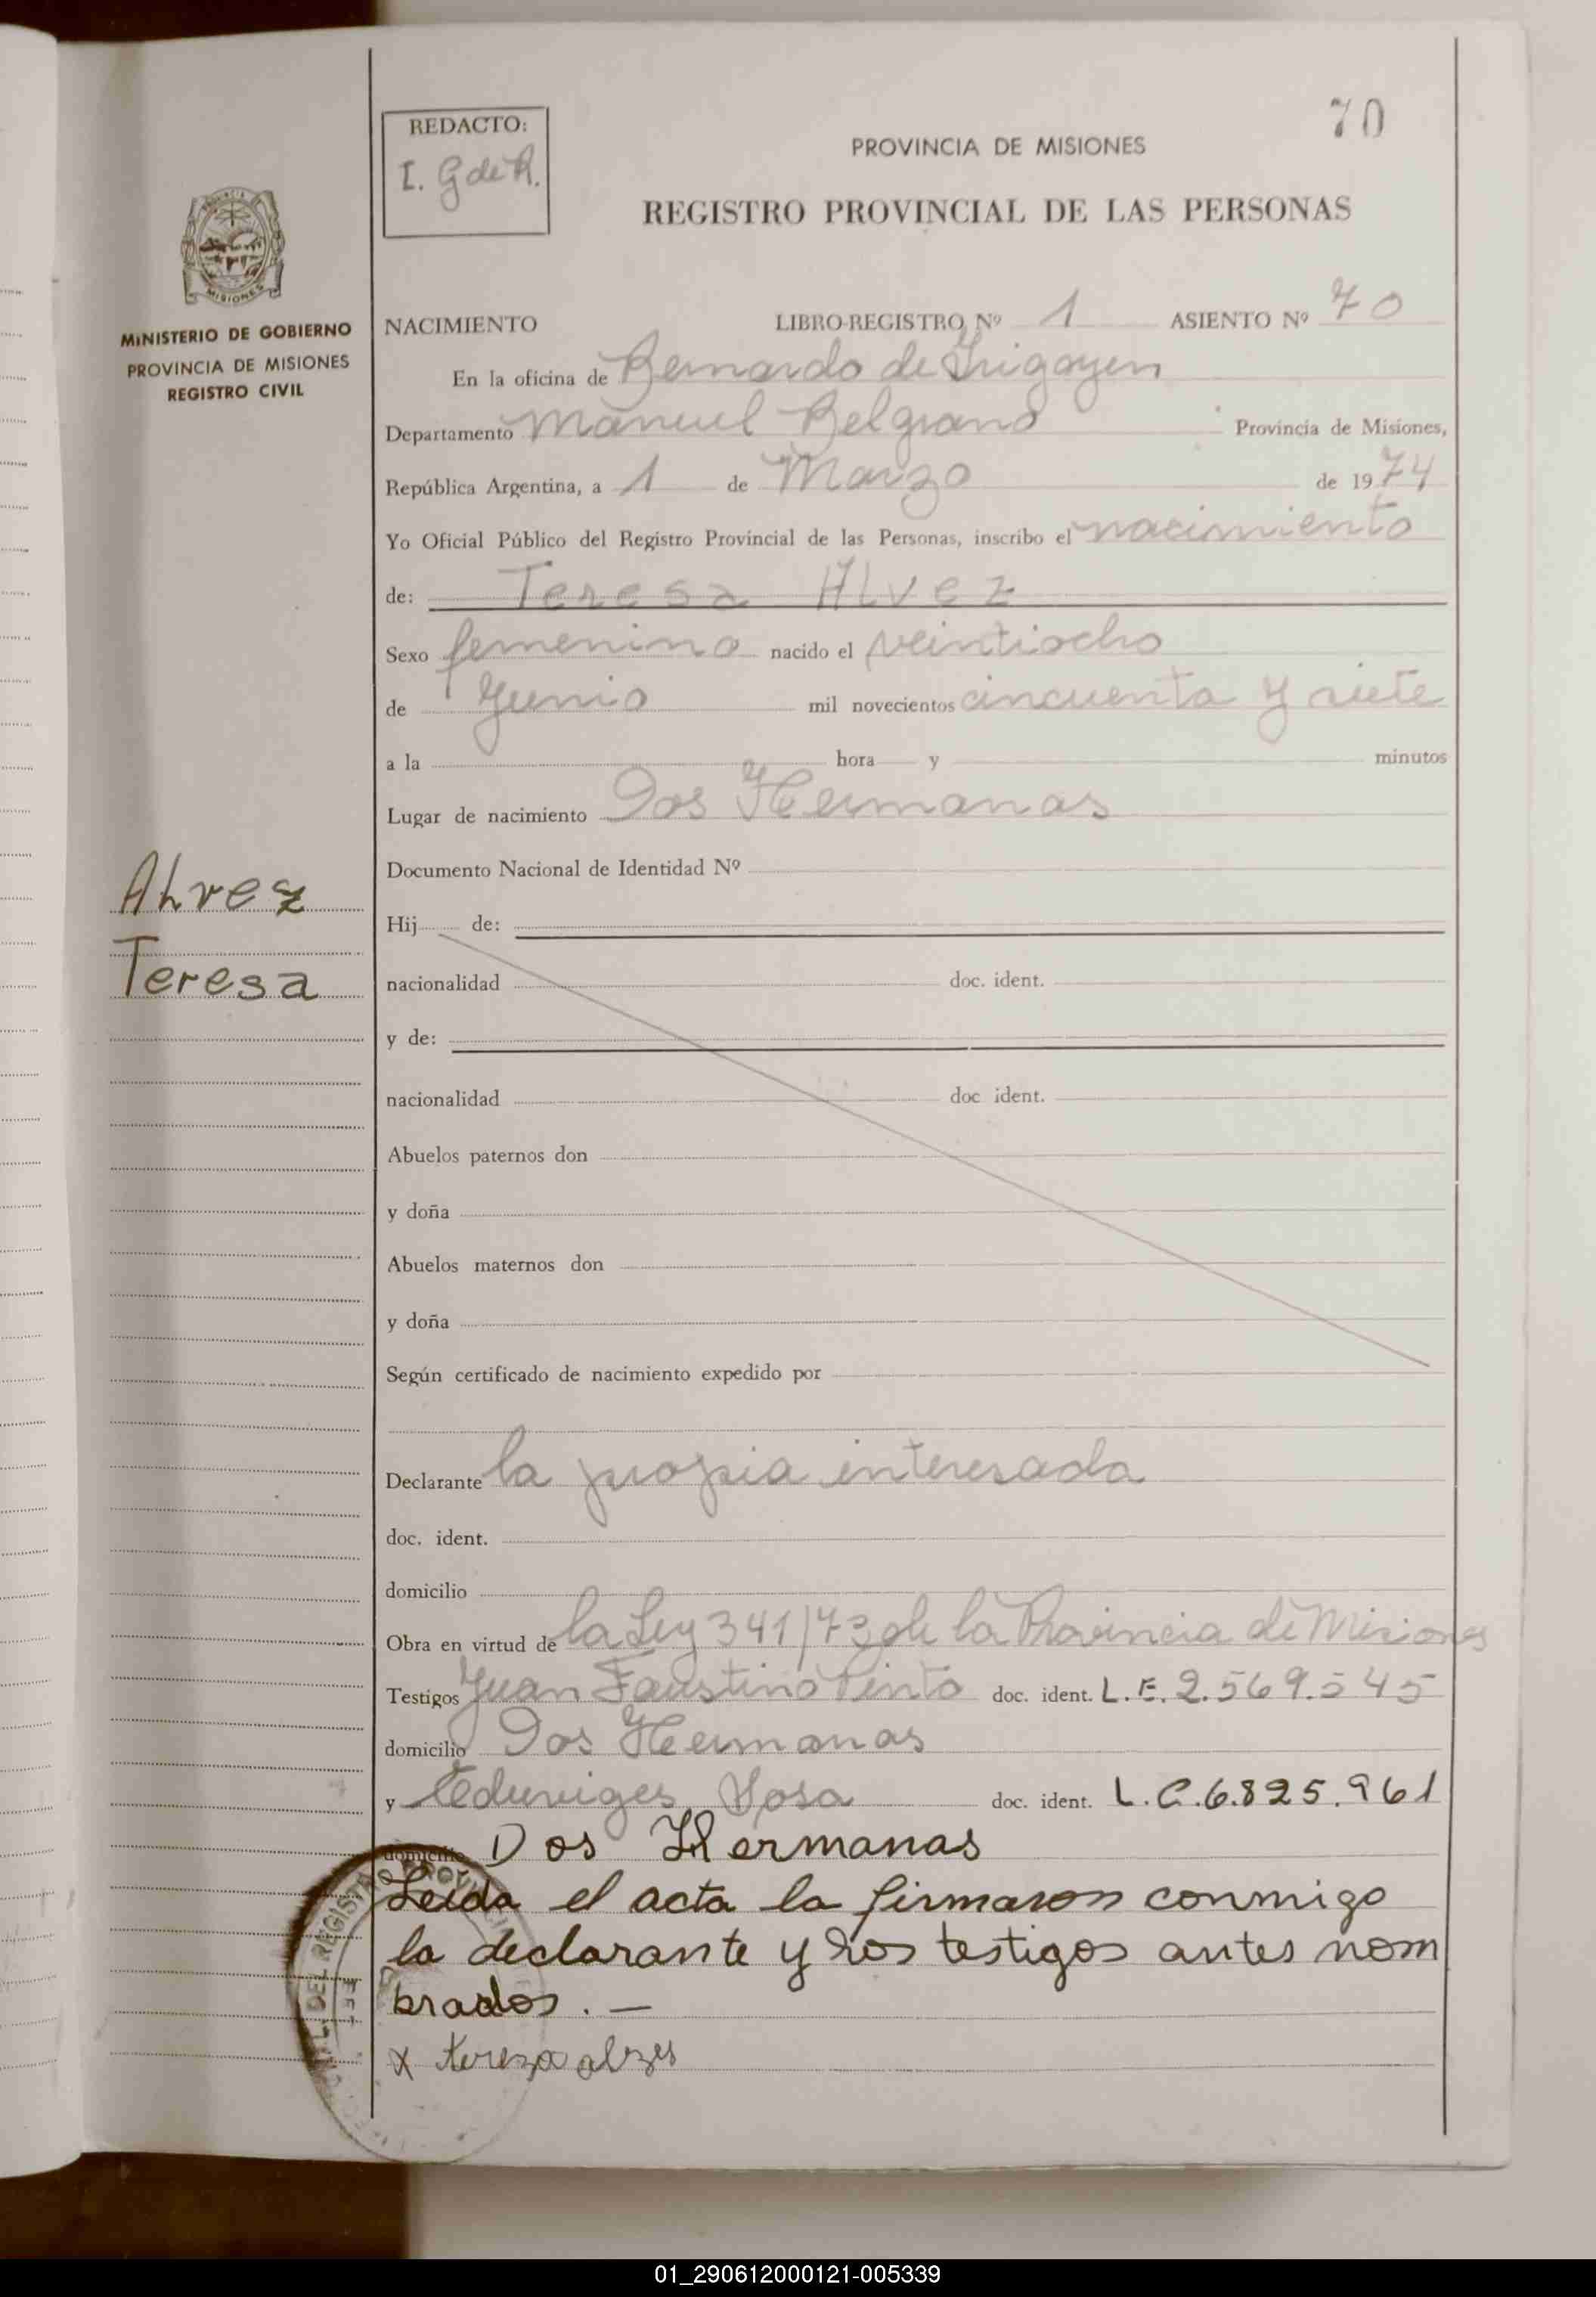 REDACTO:
I. G de R.
70
PROVINCIA DE MISIONES
REGISTRO PROVINCIAL DE LAS PERSONAS
MISIONES
MINISTERIO DE GOBIERNO
PROVINCIA DE MISIONES
REGISTRO CIVIL
NACIMIENTO LIBRO-REGISTRO Nº 1 ASIENTO Nº 70
En la oficina de Bernardo de Irigoyen
Departamento Manuel Belgrano Provincia de Misiones,
República Argentina, a 1 de Marzo de 1974
Yo Oficial Público del Registro Provincial de las Personas, inscribo el nacimiento
de: Teresa Alvez
Sexo femenino nacido el veintiocho
de Junio mil novecientos cincuenta y siete
a la hora y minutos
Lugar de nacimiento Dos Hermanas
Documento Nacional de Identidad Nº
Alvez
Teresa
Hij de:
nacionalidad doc. ident.
y de:
nacionalidad doc ident.
Abuelos paternos don
y doña
Abuelos maternos don
y doña
Según certificado de nacimiento expedido por
Declarante la propia interesada
doc. ident.
domicilio
Obra en virtud de la Ley 341/73 de la Provincia de Misiones
Testigos Juan Faustino Pinto doc. ident. L.E. 2.569.545
domicilio Dos Hermanas
y Eduviges Sosa doc. ident. L.C. 6.825.961
domicilio Dos Hermanas
Leída el acta la firmaron conmigo
la declarante y los testigos antes nom
brados. —
x tereza alzes
01_290612000121-005339